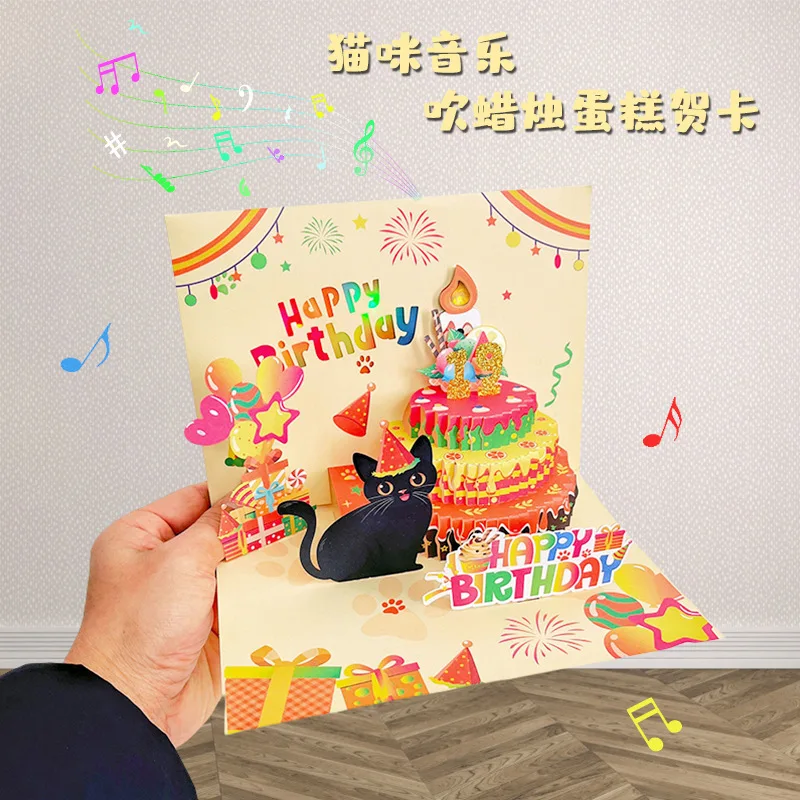 猫咪音乐
吹蜡烛蛋糕贺卡
Happy
Birthday
19
HAPPY
BIRTHDAY